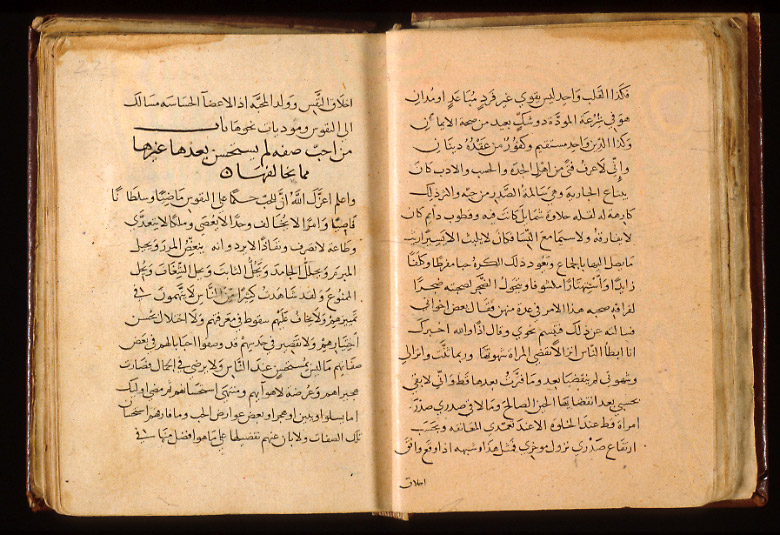 فكذا القلب واحد ليس يهوى غير فرد مباعد او مدان
هو في شرعة المودة ذو شك بعيد من صحة الايمان
وكذا الدين واحد مستقيم وكفور من عقده دينان
واني لاعرف فتى من اهل الجدة والحسب والادب كان
يبتاع الجارية وهي سالمة الصدر من حبه واكثر ذلك
كارهة له لقلة حلاوة شمايل كانت فيه وقطوب دايم كان
لا يفارقه ولا سيما مع النسا فكان لا يلبث الا يسيرا ريث
ما يصل اليها بالجماع ويعود ذلك الكره حبا مفرطا وكلفا
زايدا واستهتارا مكشوفا ويتحول الضجر لصحبته ضجرا
لفراقه صحبه هذا الامر في عدة منهن فقال بعض اخواني
فسالته عن ذلك فتبسم نحوي وقال اذا والله اخبرك
انا ابطأ الناس انزالا تقضي المراة شهوتها وربما ثنت وانزالي
وشهوتي لم ينقضيا بعد وما فترت بعدها قط واني لابقى
بحسبي بعد انقضايها الحين الصالح وما لاقى صدري صدر
امراة قط عند الخلوة الا عند تعمدي المعانقة وبحسب
ارتفاع صدري نزول موخري فمثل هذا وشبهه اذا وقع وافق
اخلاق
اخلاق النفس وولد المحبة اذ الاعضا الحساسة مسالك
الى النفوس ومؤديات نحوها باب
من احب صفة لم يستحسن بعدها غيرها
مما يخالفها
واعلم اعزك الله ان للحب حكما على النفوس ماضيا وسلطانا
قاضيا وامرا لا يخالف وحدا لا يعصى وملكا لا يتعدى
وطاعة لا تصرف ونفاذا لا يرد وانه ينقض المرر ويحل
المبرم ويحلل الجامد ويخل الثابت ويحل الشغاف ويحل
الممنوع ولقد شاهدت كثيرا من الناس لا يتهمون في
تمييزهم ولا يخاف عليهم سقوط في معرفتهم ولا اختلال بحسن
اختيارهم ولا تقصير في حدسهم قد وصفوا احبابا لهم في بعض
صفاتهم بما ليس بمستحسن عند الناس ولا يرضى في الجمال فصارت
هجيراهم وعرضة لاهوايهم ومنتهى استحسانهم ثم مضى اوليك
اما بسلو او بين او هجر او بعض عوارض الحب وما فارقهم استحسان
تلك الصفات ولا بان عنهم تفضيلها على ما هو افضل منها في